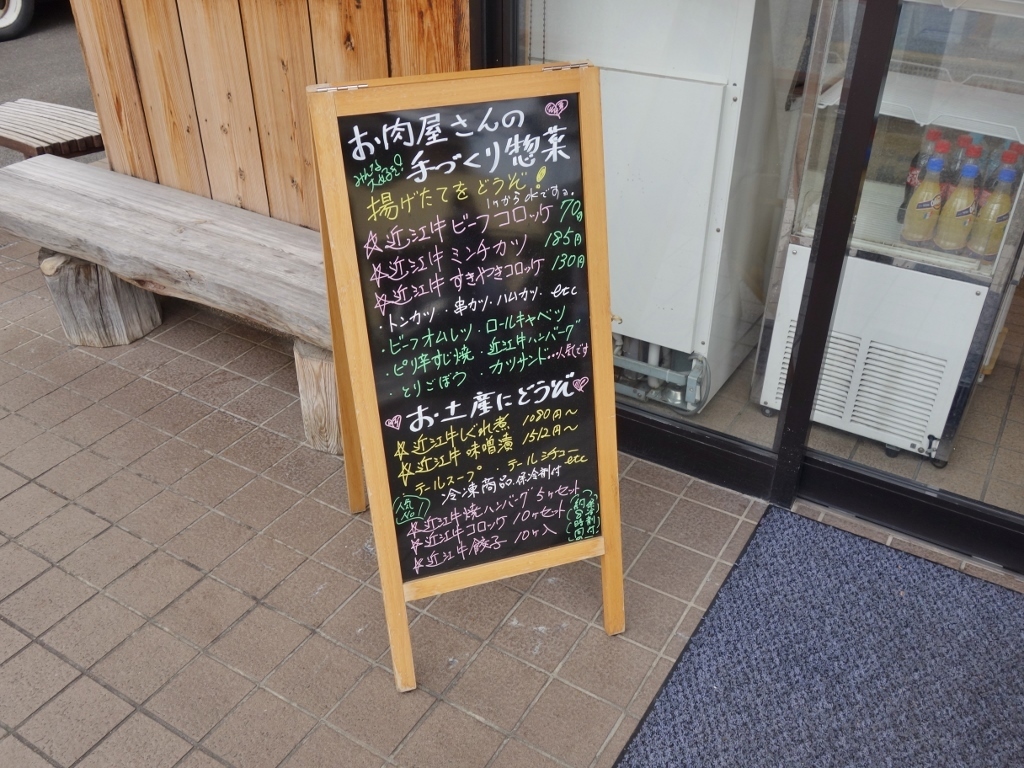 お肉屋さんの
手づくり惣菜
揚げたてをどうぞ!
1ケからOKです。
☆近江牛ビーフコロッケ 70円
☆近江牛ミンチカツ 185円
☆近江牛すきやきコロッケ 130円
・トンカツ・串カツ・ハムカツ・etc
・ビーフオムレツ・ロールキャベツ
・ピリ辛すじ焼・近江牛ハンバーグ
・とりごぼう・カツサンド…人気です
お土産にどうぞ
☆近江牛しぐれ煮 1080円〜
☆近江牛味噌漬 1512円〜
テールスープ・テールシチューetc
冷凍商品 保冷剤付
人気
No1
☆近江牛焼ハンバーグ 5ケセット
☆近江牛コロッケ 10ケセット
☆近江牛餃子 10ケ入
保冷剤付
約8時間OK